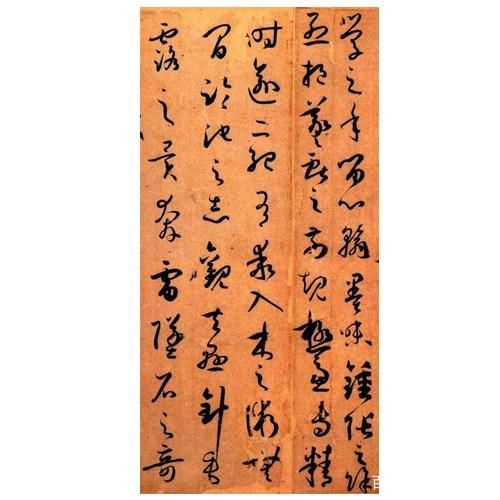 學之年留心翰墨味鍾張之餘
烈挹羲獻之前規極慮專精
時逾二紀有乖入木之術無
間臨池之志觀夫懸針垂
露之異奔雷墜石之奇